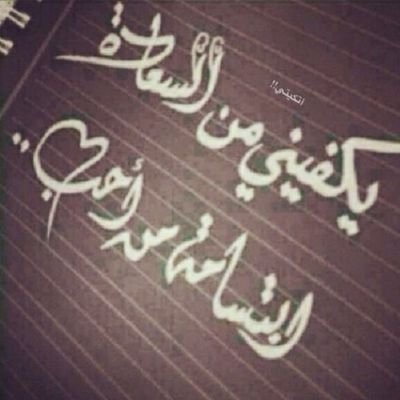 يكفيني من السعادة
ابتسامة من أحب ..
اتكيتي!!